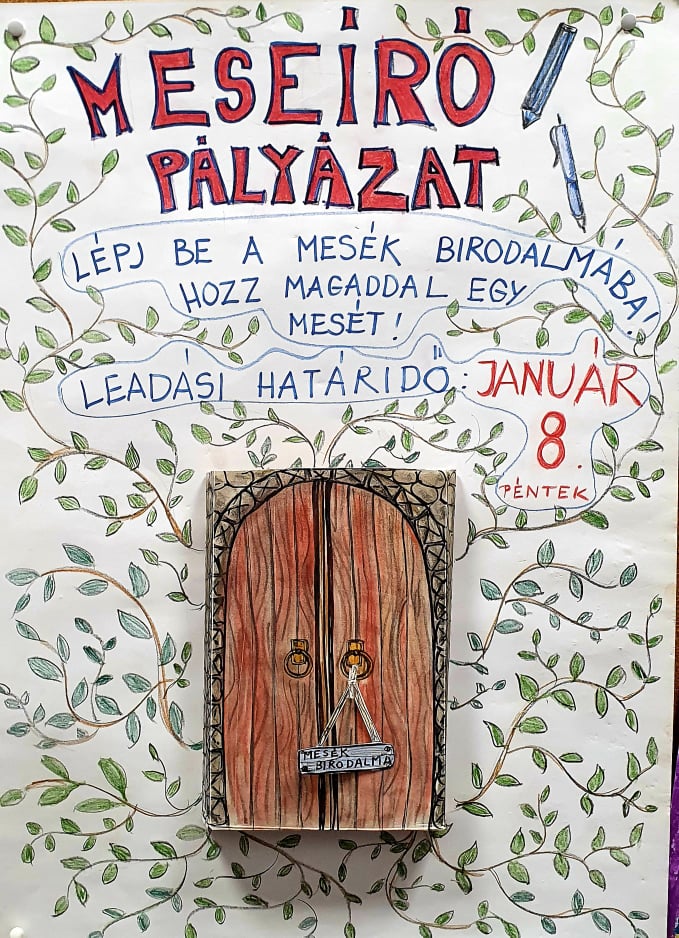 MESEÍRÓ
PÁLYÁZAT
LÉPJ BE A MESÉK BIRODALMÁBA!
HOZZ MAGADDAL EGY
MESÉT!
LEADÁSI HATÁRIDŐ: JANUÁR
8.
PÉNTEK
MESÉK
BIRODALMA